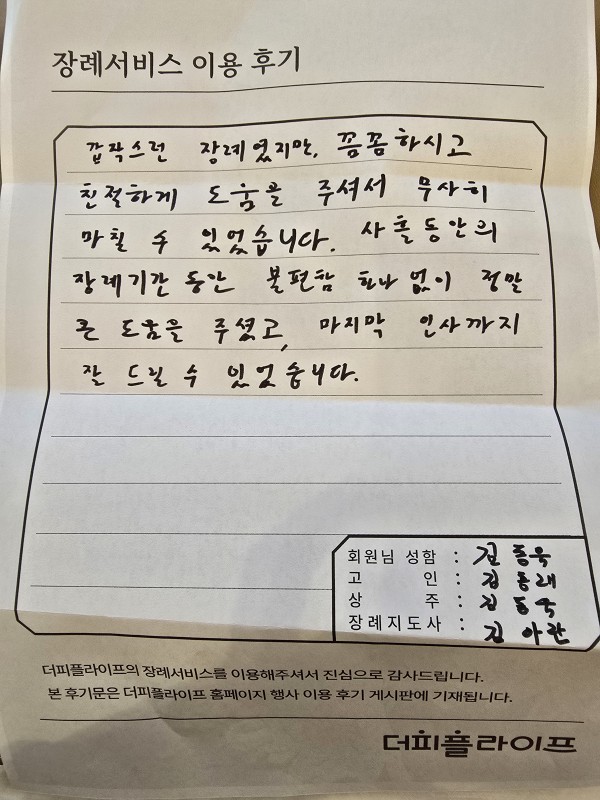 장례서비스 이용 후기
갑작스런 장례였지만, 꼼꼼하시고
친절하게 도움을 주셔서 무사히
마칠 수 있었습니다. 사흘동안의
장례기간 동안 불편함 하나 없이 정말
큰 도움을 주셨고, 마지막 인사까지
잘 드릴 수 있었습니다.
회원님 성함 : 김동욱
고 인 : 김동래
상 주 : 김동국
장례지도사 : 김아란
더피플라이프의 장례서비스를 이용해주셔서 진심으로 감사드립니다.
본 후기문은 더피플라이프 홈페이지 행사 이용 후기 게시판에 기재됩니다.
더피플라이프